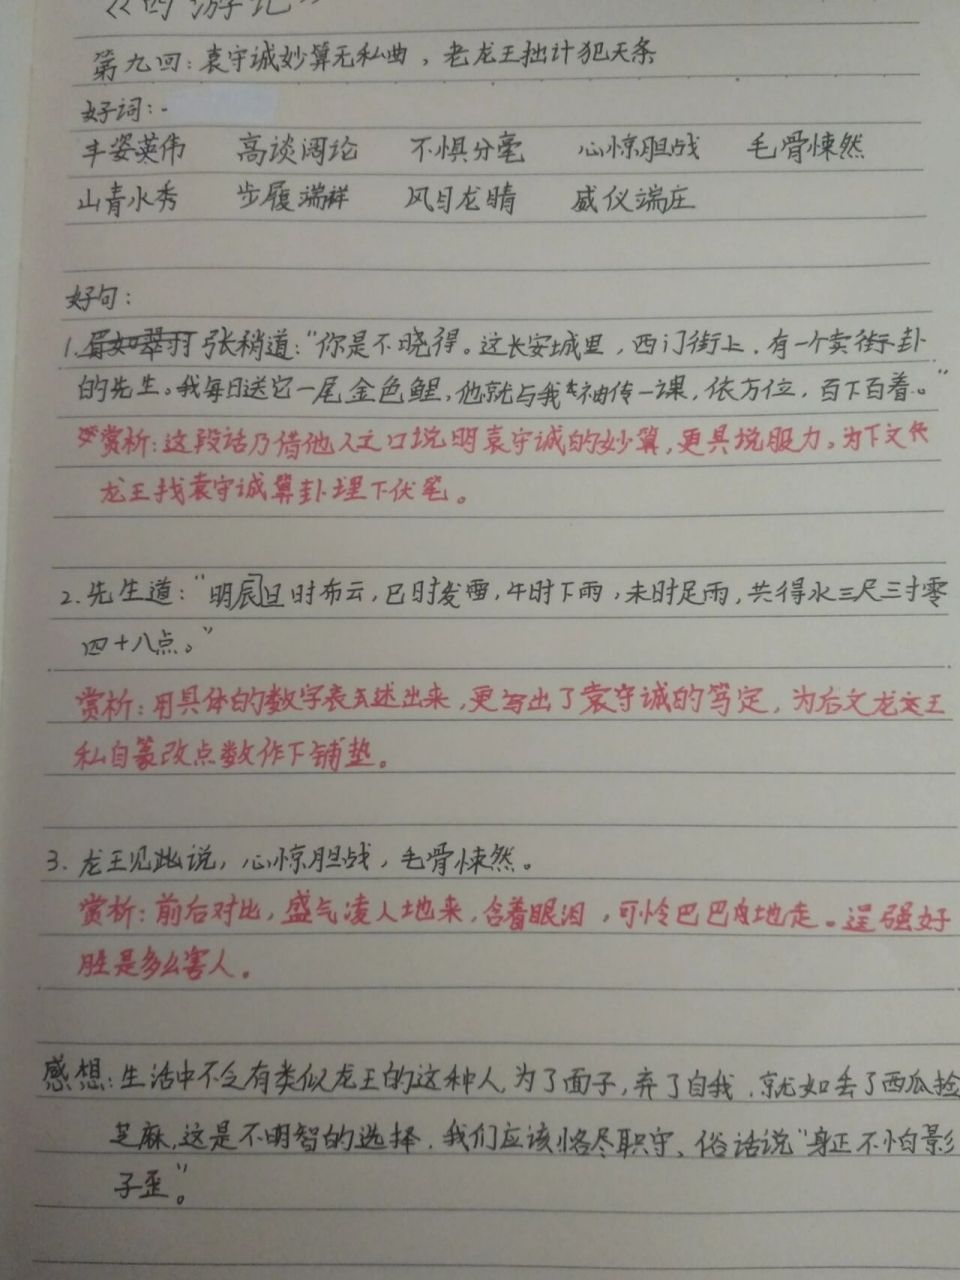 《西游记》
第九回：袁守诚妙算无私曲，老龙王拙计犯天条
好词：
丰姿英伟 高谈阔论 不惧分毫 心惊胆战 毛骨悚然
山青水秀 步履端祥 凤目龙睛 威仪端庄
好句：
1. 眉如翠羽 张稍道：“你是不晓得。这长安城里，西门街上，有一个卖卦
的先生。我每日送它一尾金色鲤，他就与我袖传一课，依方位，百下百着。”
赏析：这段话乃借他人之口说明袁守诚的妙算，更具说服力。为下文
龙王找袁守诚算卦埋下伏笔。
2. 先生道：“明辰时布云，巳时发雷，午时下雨，未时足雨，共得水三尺三寸零
四十八点。”
赏析：用具体的数字表述出来，更写出了袁守诚的笃定，为后文龙王
私自篡改点数作下铺垫。
3. 龙王见此说，心惊胆战，毛骨悚然。
赏析：前后对比，盛气凌人地来，含着眼泪，可怜巴巴地走。逞强好
胜是多么害人。
感想：生活中不乏有类似龙王的这种人，为了面子，弃了自我，就如丢了西瓜捡
芝麻，这是不明智的选择，我们应该恪尽职守、俗话说“身正不怕影
子歪”。